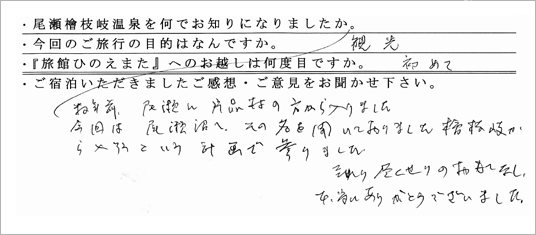 ・尾瀬檜枝岐温泉を何でお知りになりましたか。
・今回のご旅行の目的はなんですか。 観光
・『旅館ひのえまた』へのお越しは何度目ですか。 初めて
・ご宿泊いただきましたご感想・ご意見をお聞かせ下さい。
尾瀬に片品村の方から入りました
今回は尾瀬沼へ、その名を聞いておりました檜枝岐か
ら入るという計画で参りました
至れり尽くせりのおもてなし、
本当にありがとうございました。